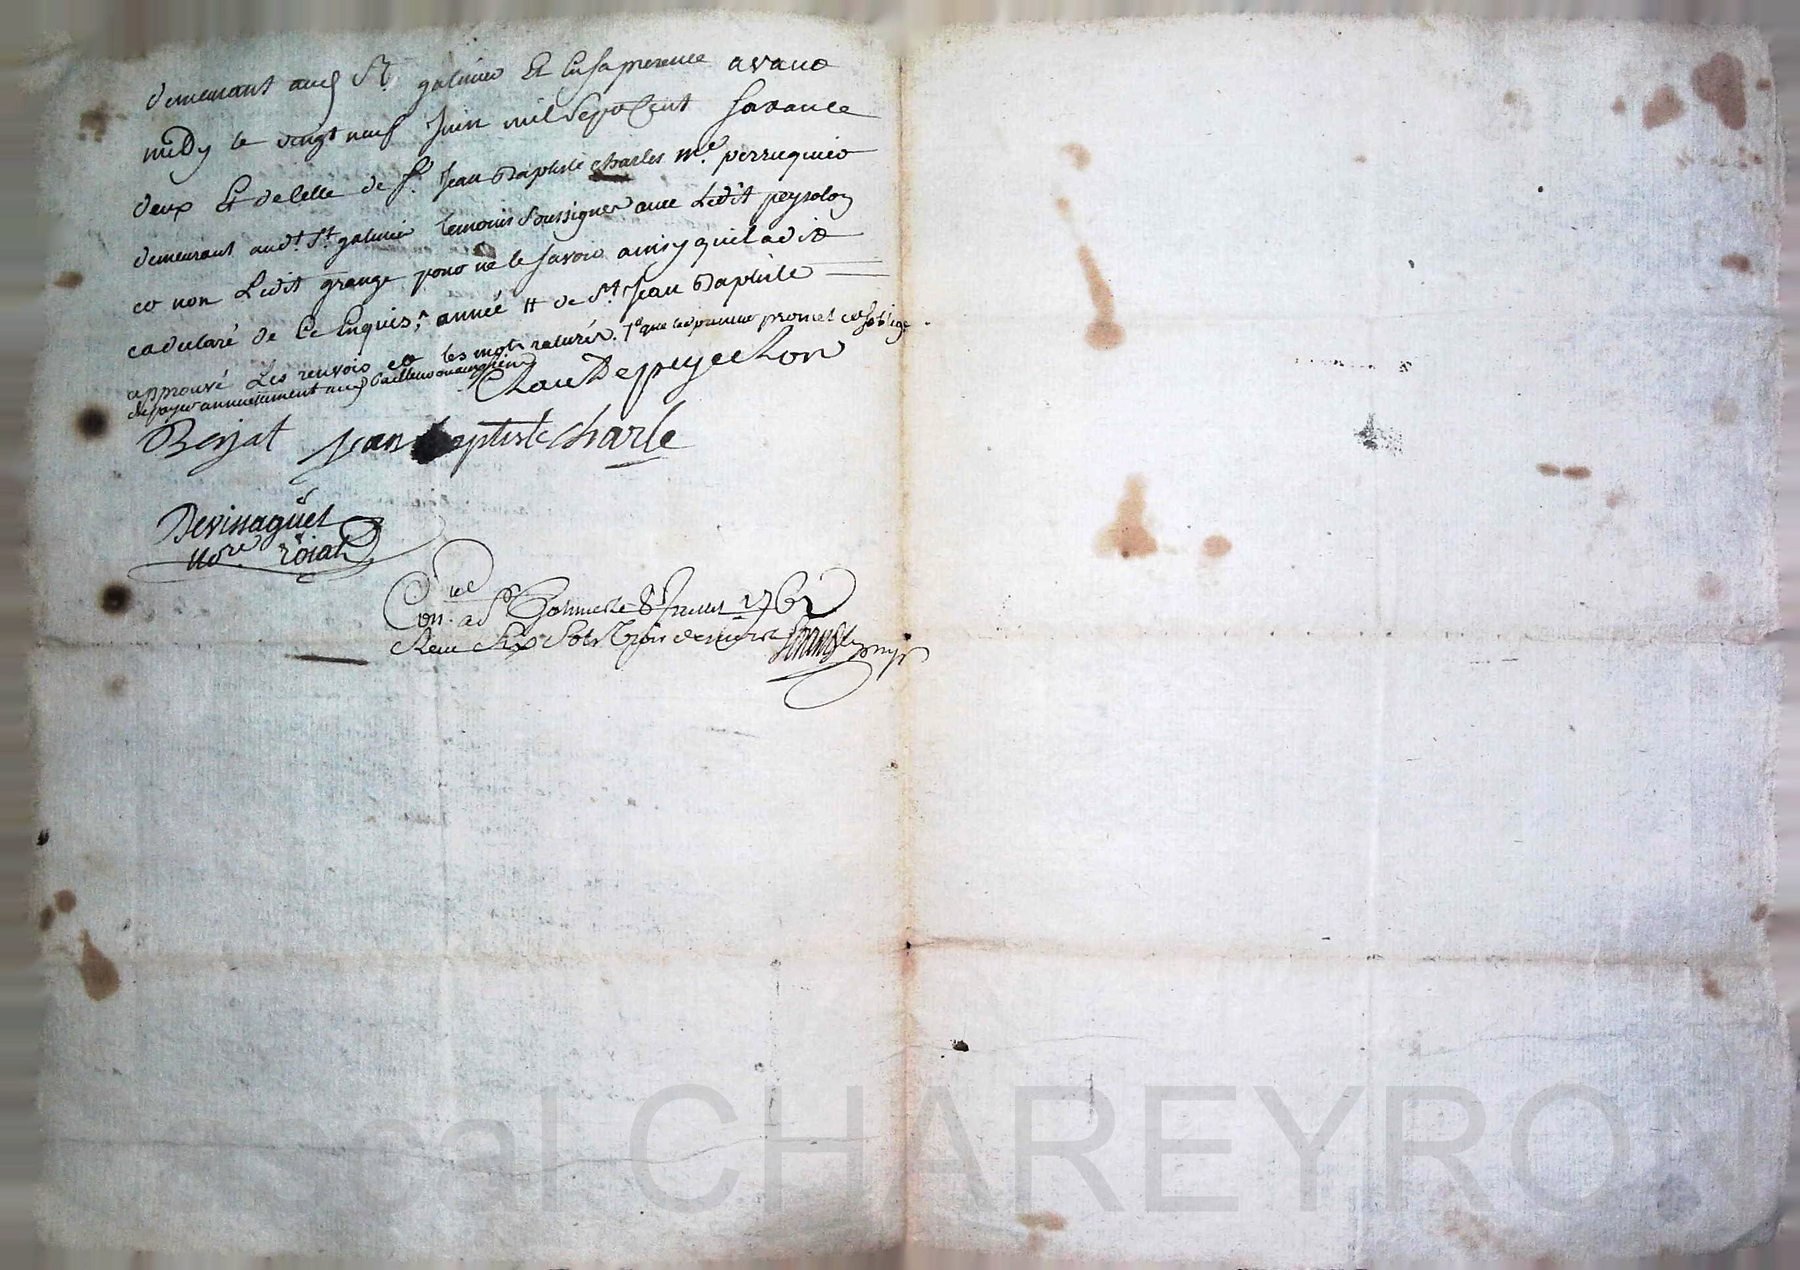 demeurant aud St galmier Et En sa presence avant
midy le vingt neuf Juin mil sept Cent soixante
deux Et de celle de Sr Jean Baptiste charles me perruquier
demeurant audt St galmier temoins soussignes avec Ledit peysselon
et non Ledit grange pour ne le savoir ainsy quil a dit
et declaré de Ce Enquis, année # de St Jean Baptiste
approuvé Les renvois et les mots raturés. 1º que led preneur promet et soblige
de payer annuellement aud Bailleur
Claude peyechon
Benjat Jean baptiste charle
Devinaguet
nore roial
Conlle a St Galmier le 8 Juillet 1762
Recu Six Sols trois deniers
Pascal CHAREYRON